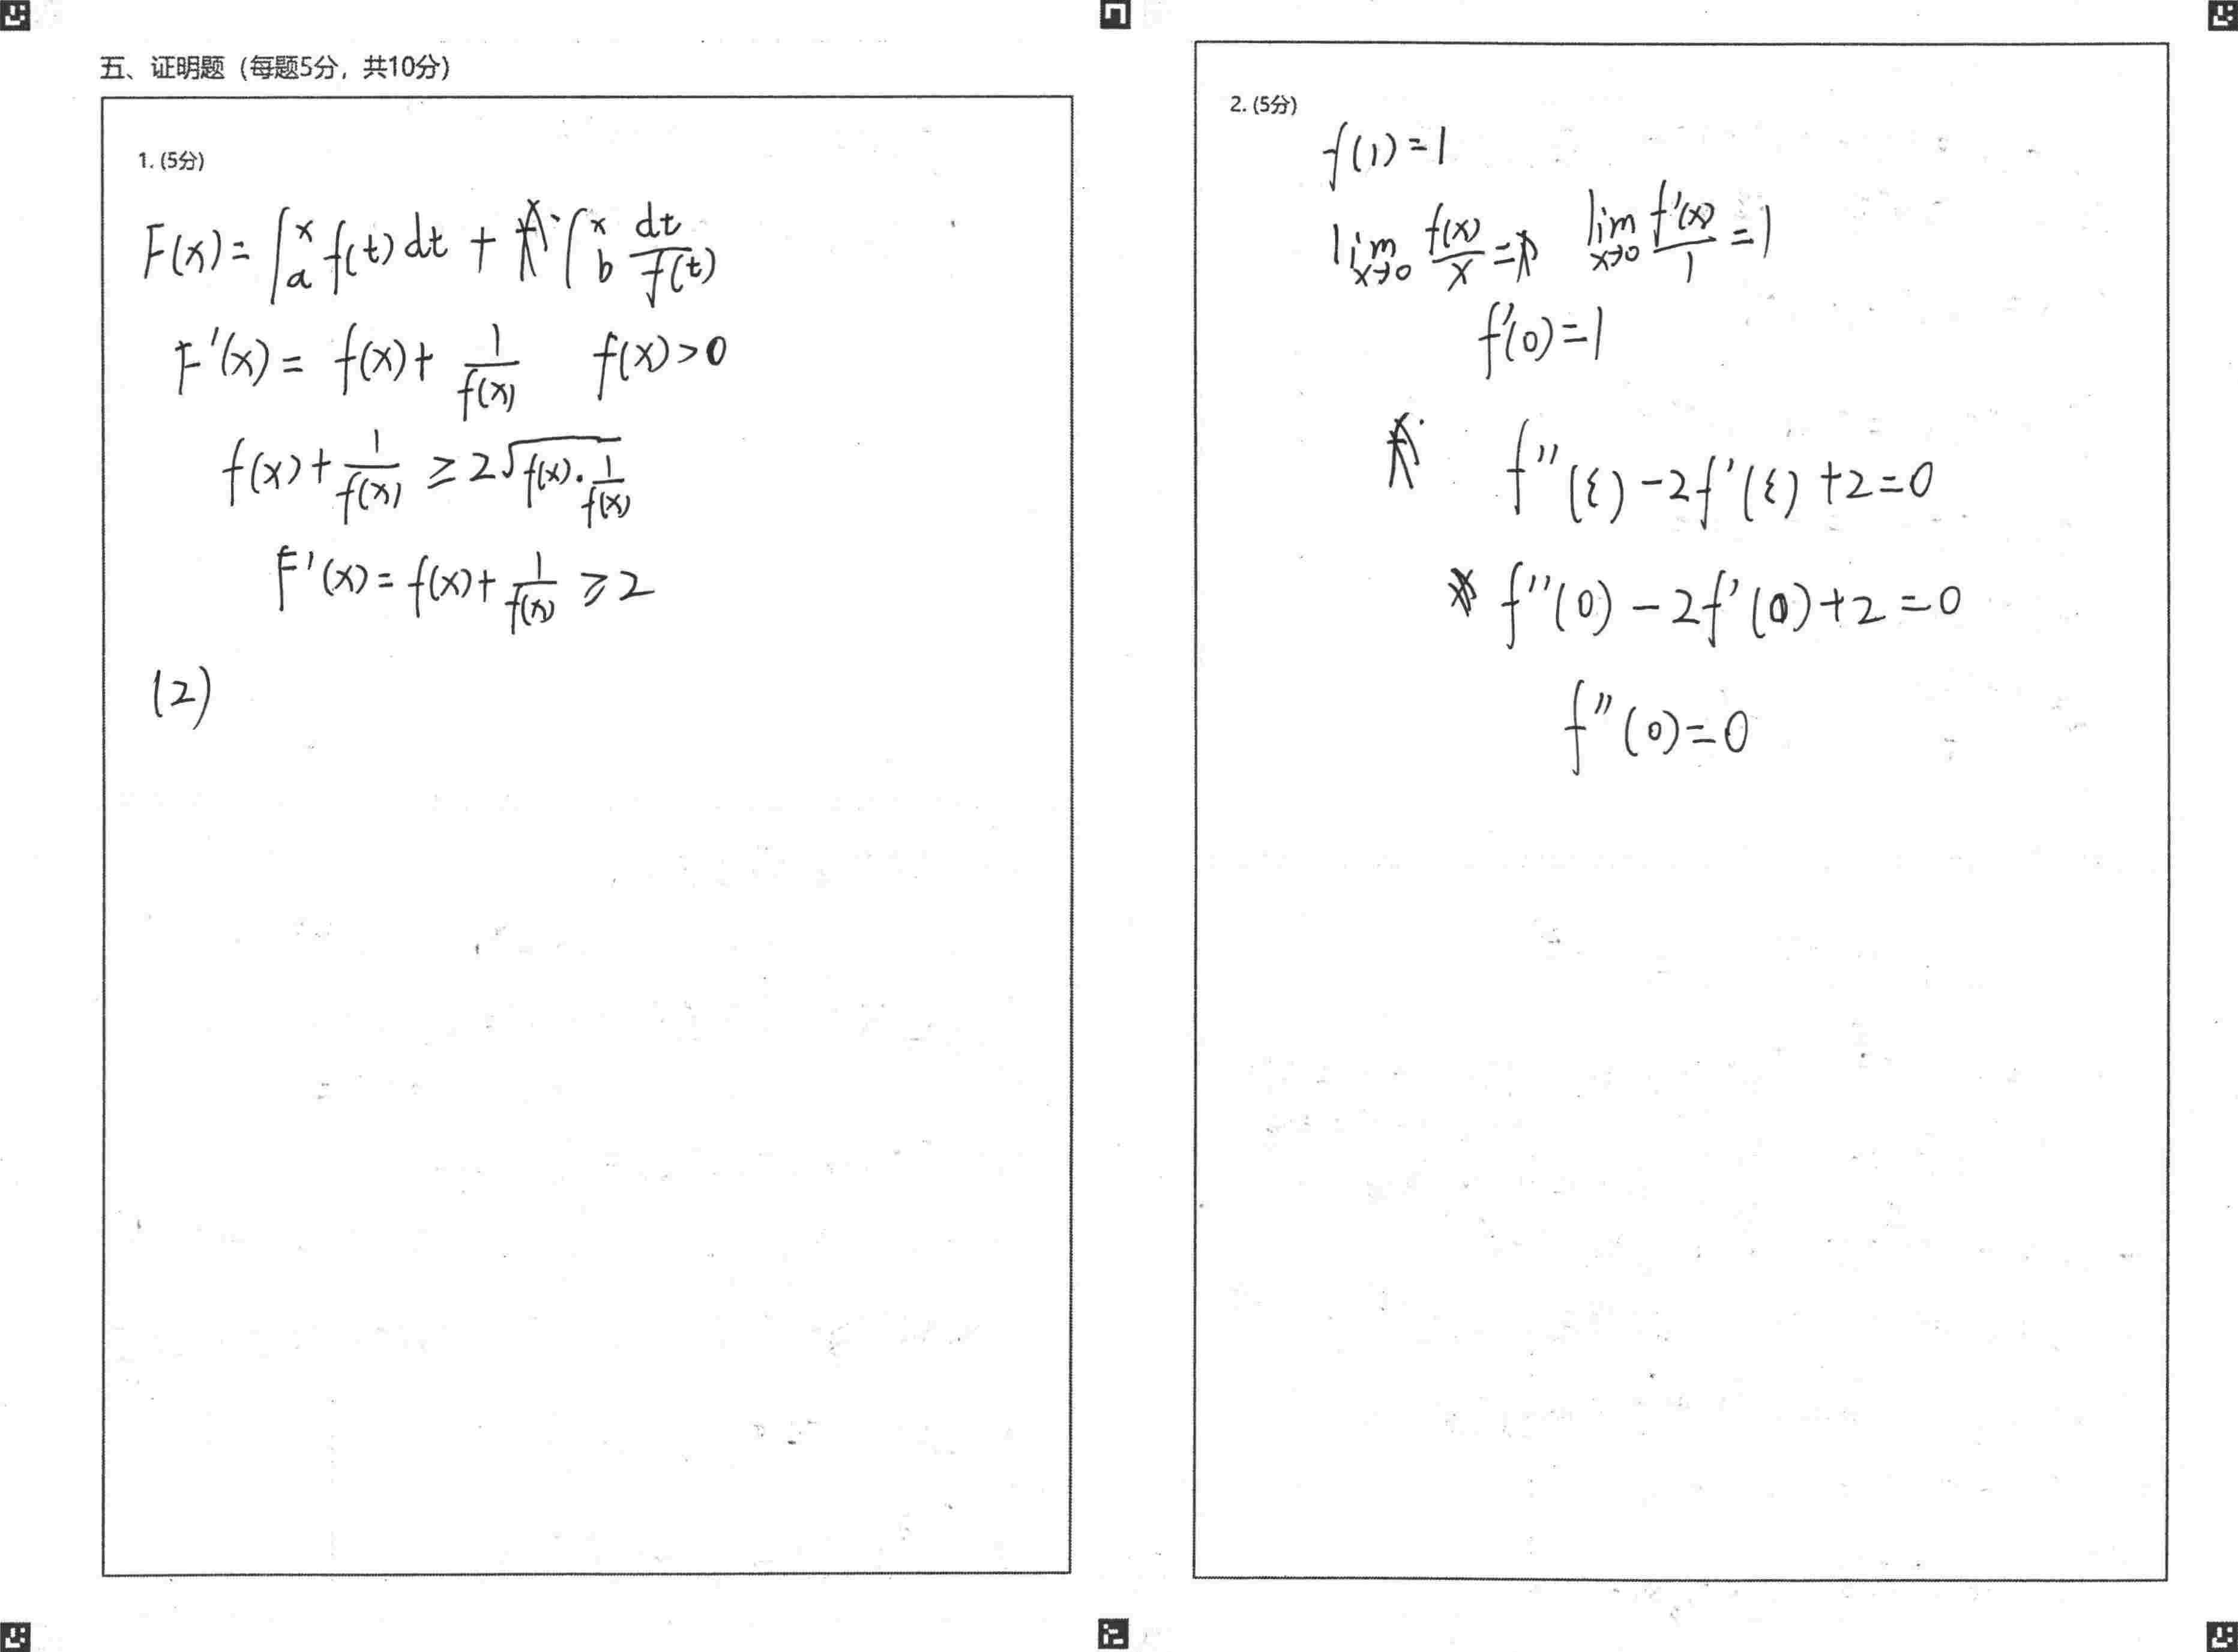 五、证明题（每题5分，共10分）
1. (5分)
F(x) = ∫ₐˣ f(t) dt + ∫_bˣ dt/f(t)
F'(x) = f(x) + 1/f(x)   f(x) > 0
f(x) + 1/f(x) ≥ 2√(f(x)·1/f(x))
F'(x) = f(x) + 1/f(x) ≥ 2
(2)
2. (5分)
f(1) = 1
lim x→0 f(x)/x =   lim x→0 f'(x)/1 = 1
f'(0) = 1
f''(ξ) - 2f'(ξ) + 2 = 0
f''(0) - 2f'(0) + 2 = 0
f''(0) = 0